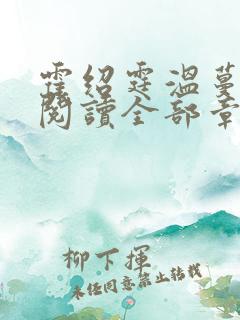 霆紹霆溫蔓
閱讀全部章
柳下揮
未經同意禁止轉載